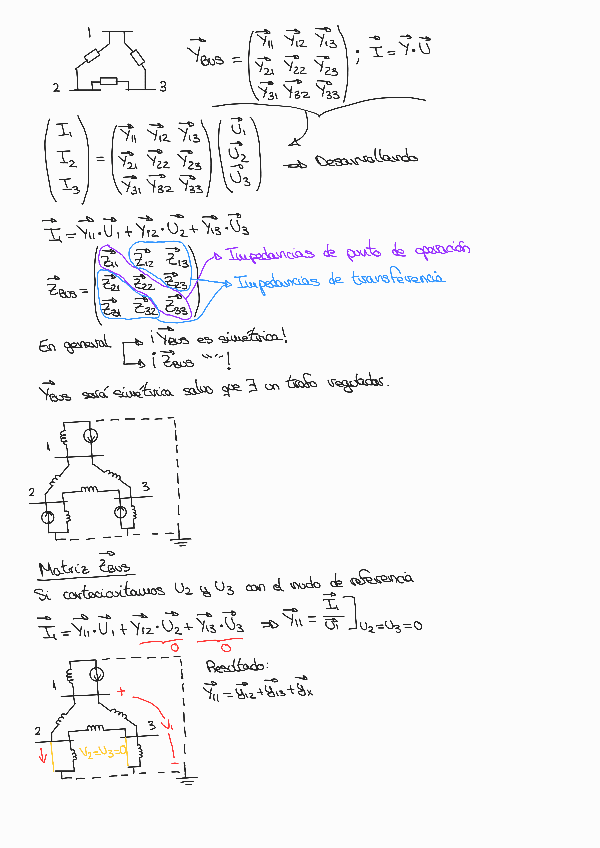 1
2 3
Y⃗BUS = (Y⃗11 Y⃗12 Y⃗13 ; I⃗ = Y⃗·U⃗
Y⃗21 Y⃗22 Y⃗23
Y⃗31 Y⃗32 Y⃗33)
(I⃗1 (Y⃗11 Y⃗12 Y⃗13 (U⃗1
I⃗2 = Y⃗21 Y⃗22 Y⃗23 U⃗2 ⇒ Desarrollando
I⃗3) Y⃗31 Y⃗32 Y⃗33) U⃗3)
I⃗1 = Y⃗11·U⃗1 + Y⃗12·U⃗2 + Y⃗13·U⃗3
Z⃗BUS = (Z⃗11 Z⃗12 Z⃗13 → Impedancias de punto de operación
Z⃗21 Z⃗22 Z⃗23 → Impedancias de transferencia
Z⃗31 Z⃗32 Z⃗33)
En general → ¡Y⃗BUS es simétrica!
→ ¡Z⃗BUS " "!
Y⃗BUS será simétrica salvo que ∃ un trafo regulador.
1
2 3
Matriz Z⃗BUS
Si cortocircuitamos U2 y U3 con el nudo de referencia
I⃗1 = Y⃗11·U⃗1 + Y⃗12·U⃗2 + Y⃗13·U⃗3 ⇒ Y⃗11 = I⃗1/U⃗1 ]U2=U3=0
0 0
Resultado:
Y⃗11 = y⃗12 + y⃗13 + y⃗x
1 +
2 3 U1
U2=U3=0
−